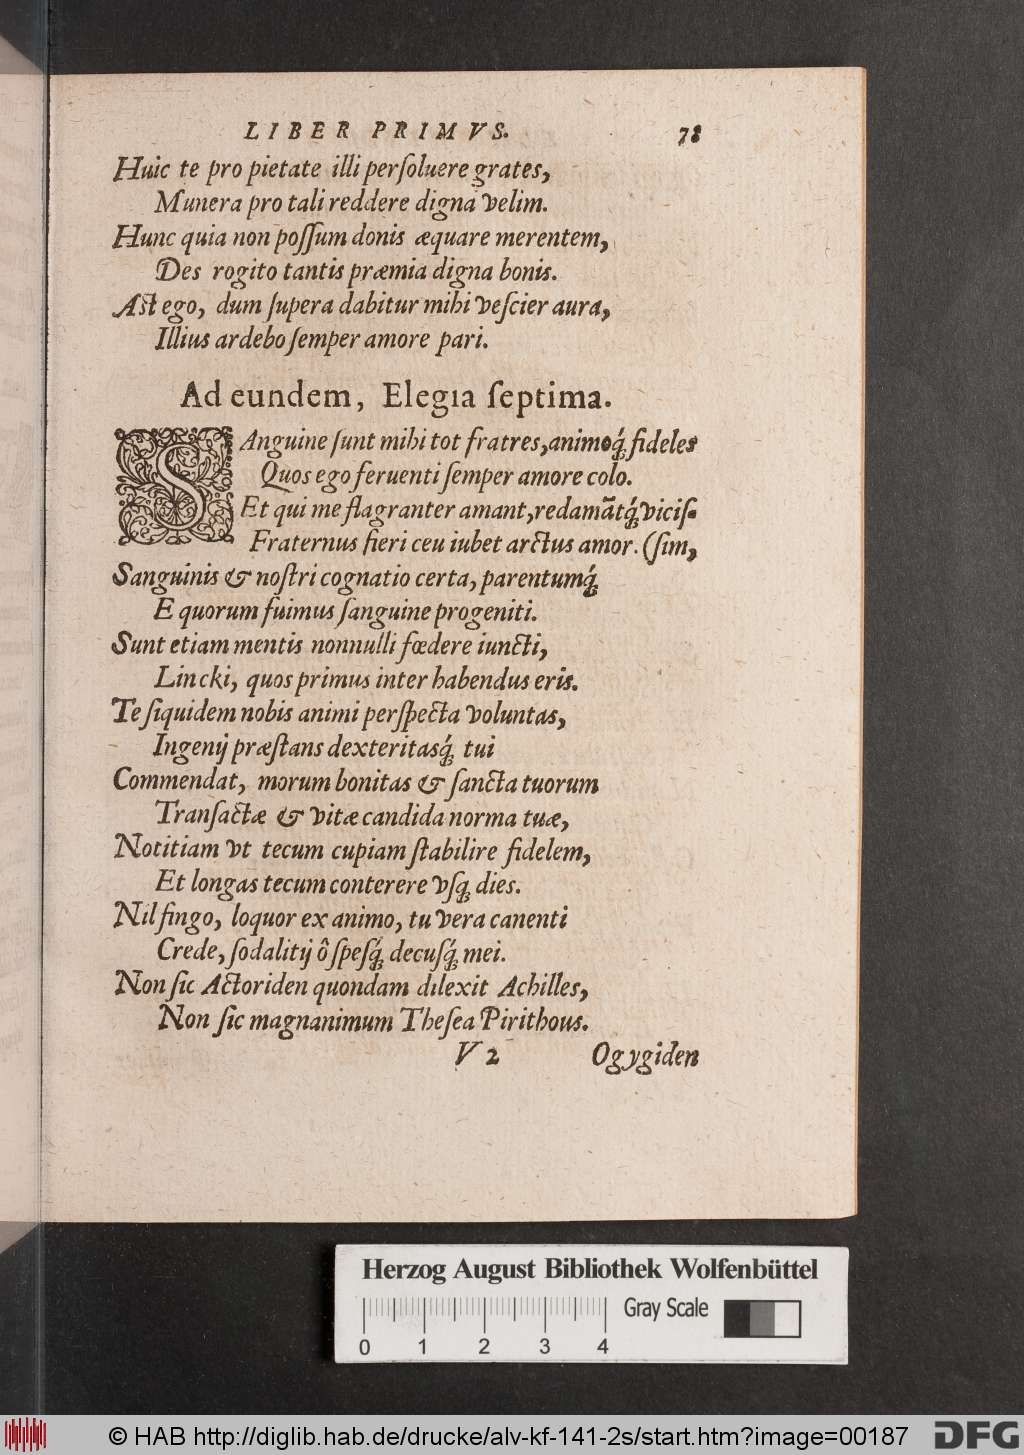 LIBER PRIMVS. 78
Huic te pro pietate illi perſoluere grates,
Munera pro tali reddere digna velim.
Hunc quia non poſſum donis æquare merentem,
Des rogito tantis præmia digna bonis.
Aſt ego, dum ſupera dabitur mihi veſcier aura,
Illius ardebo ſemper amore pari.
Ad eundem, Elegia ſeptima.
SAnguine ſunt mihi tot fratres, animoq́; fideles
Quos ego feruenti ſemper amore colo.
Et qui me flagranter amant, redamãtq́; viciſ-
Fraternus fieri ceu iubet arctus amor. (ſim,
Sanguinis & noſtri cognatio certa, parentumq́;
E quorum fuimus ſanguine progeniti.
Sunt etiam mentis nonnulli fœdere iuncti,
Lincki, quos primus inter habendus eris.
Te ſiquidem nobis animi perſpecta voluntas,
Ingenij præſtans dexteritasq́; tui
Commendat, morum bonitas & ſancta tuorum
Tranſactæ & vitæ candida norma tuæ,
Notitiam vt tecum cupiam ſtabilire fidelem,
Et longas tecum conterere vſq; dies.
Nil fingo, loquor ex animo, tu vera canenti
Crede, ſodalitij ô ſpeſq́; decuſq́; mei.
Non ſic Actoriden quondam dilexit Achilles,
Non ſic magnanimum Theſea Pirithous.
V 2 Ogygiden
Herzog August Bibliothek Wolfenbüttel
0 1 2 3 4 Gray Scale
© HAB http://diglib.hab.de/drucke/alv-kf-141-2s/start.htm?image=00187 DFG